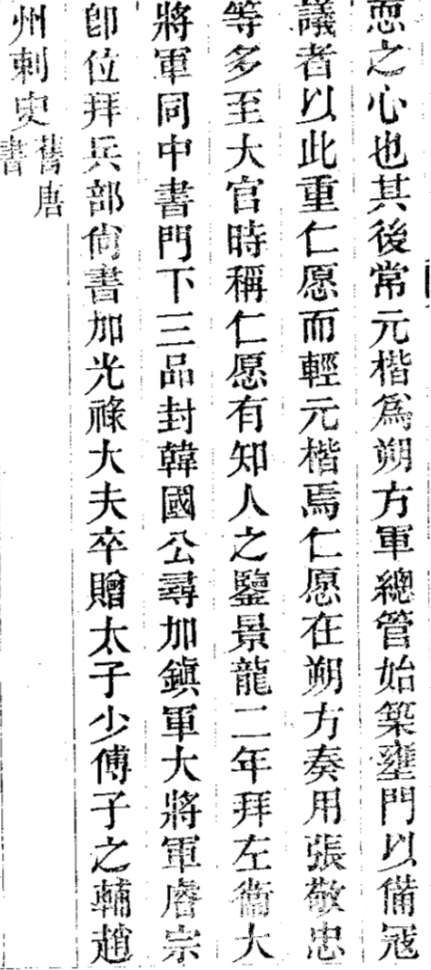 恧之心也其後常元楷爲朔方軍總管始築壅門以備寇
議者以此重仁愿而輕元楷焉仁愿在朔方奏用張敬忠
等多至大官時稱仁愿有知人之鑒景龍二年拜左衞大
將軍同中書門下三品封韓國公尋加鎭軍大將軍睿宗
卽位拜兵部尙書加光祿大夫卒贈太子少傅子之輔趙
州刺史舊唐
書